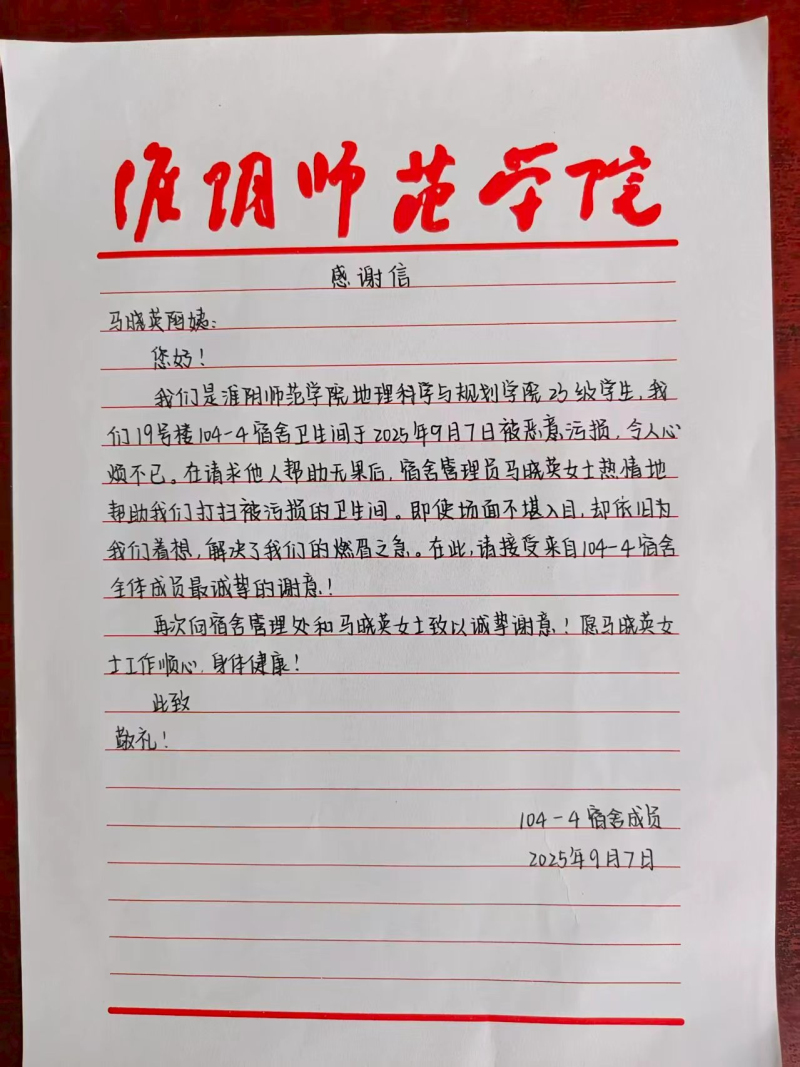 淮阴师范学院
感谢信
马晓英阿姨：
您好！
我们是淮阴师范学院地理科学与规划学院23级学生，我
们19号楼104-4宿舍卫生间于2025年9月7日被恶意污损，令人心
烦不已。在请求他人帮助无果后，宿舍管理员马晓英女士热情地
帮助我们打扫被污损的卫生间。即使场面不堪入目，却依旧为
我们着想，解决了我们的燃眉之急。在此，请接受来自104-4宿舍
全体成员最诚挚的谢意！
再次向宿舍管理处和马晓英女士致以诚挚谢意！愿马晓英女
士工作顺心，身体健康！
此致
敬礼！
104-4宿舍成员
2025年9月7日